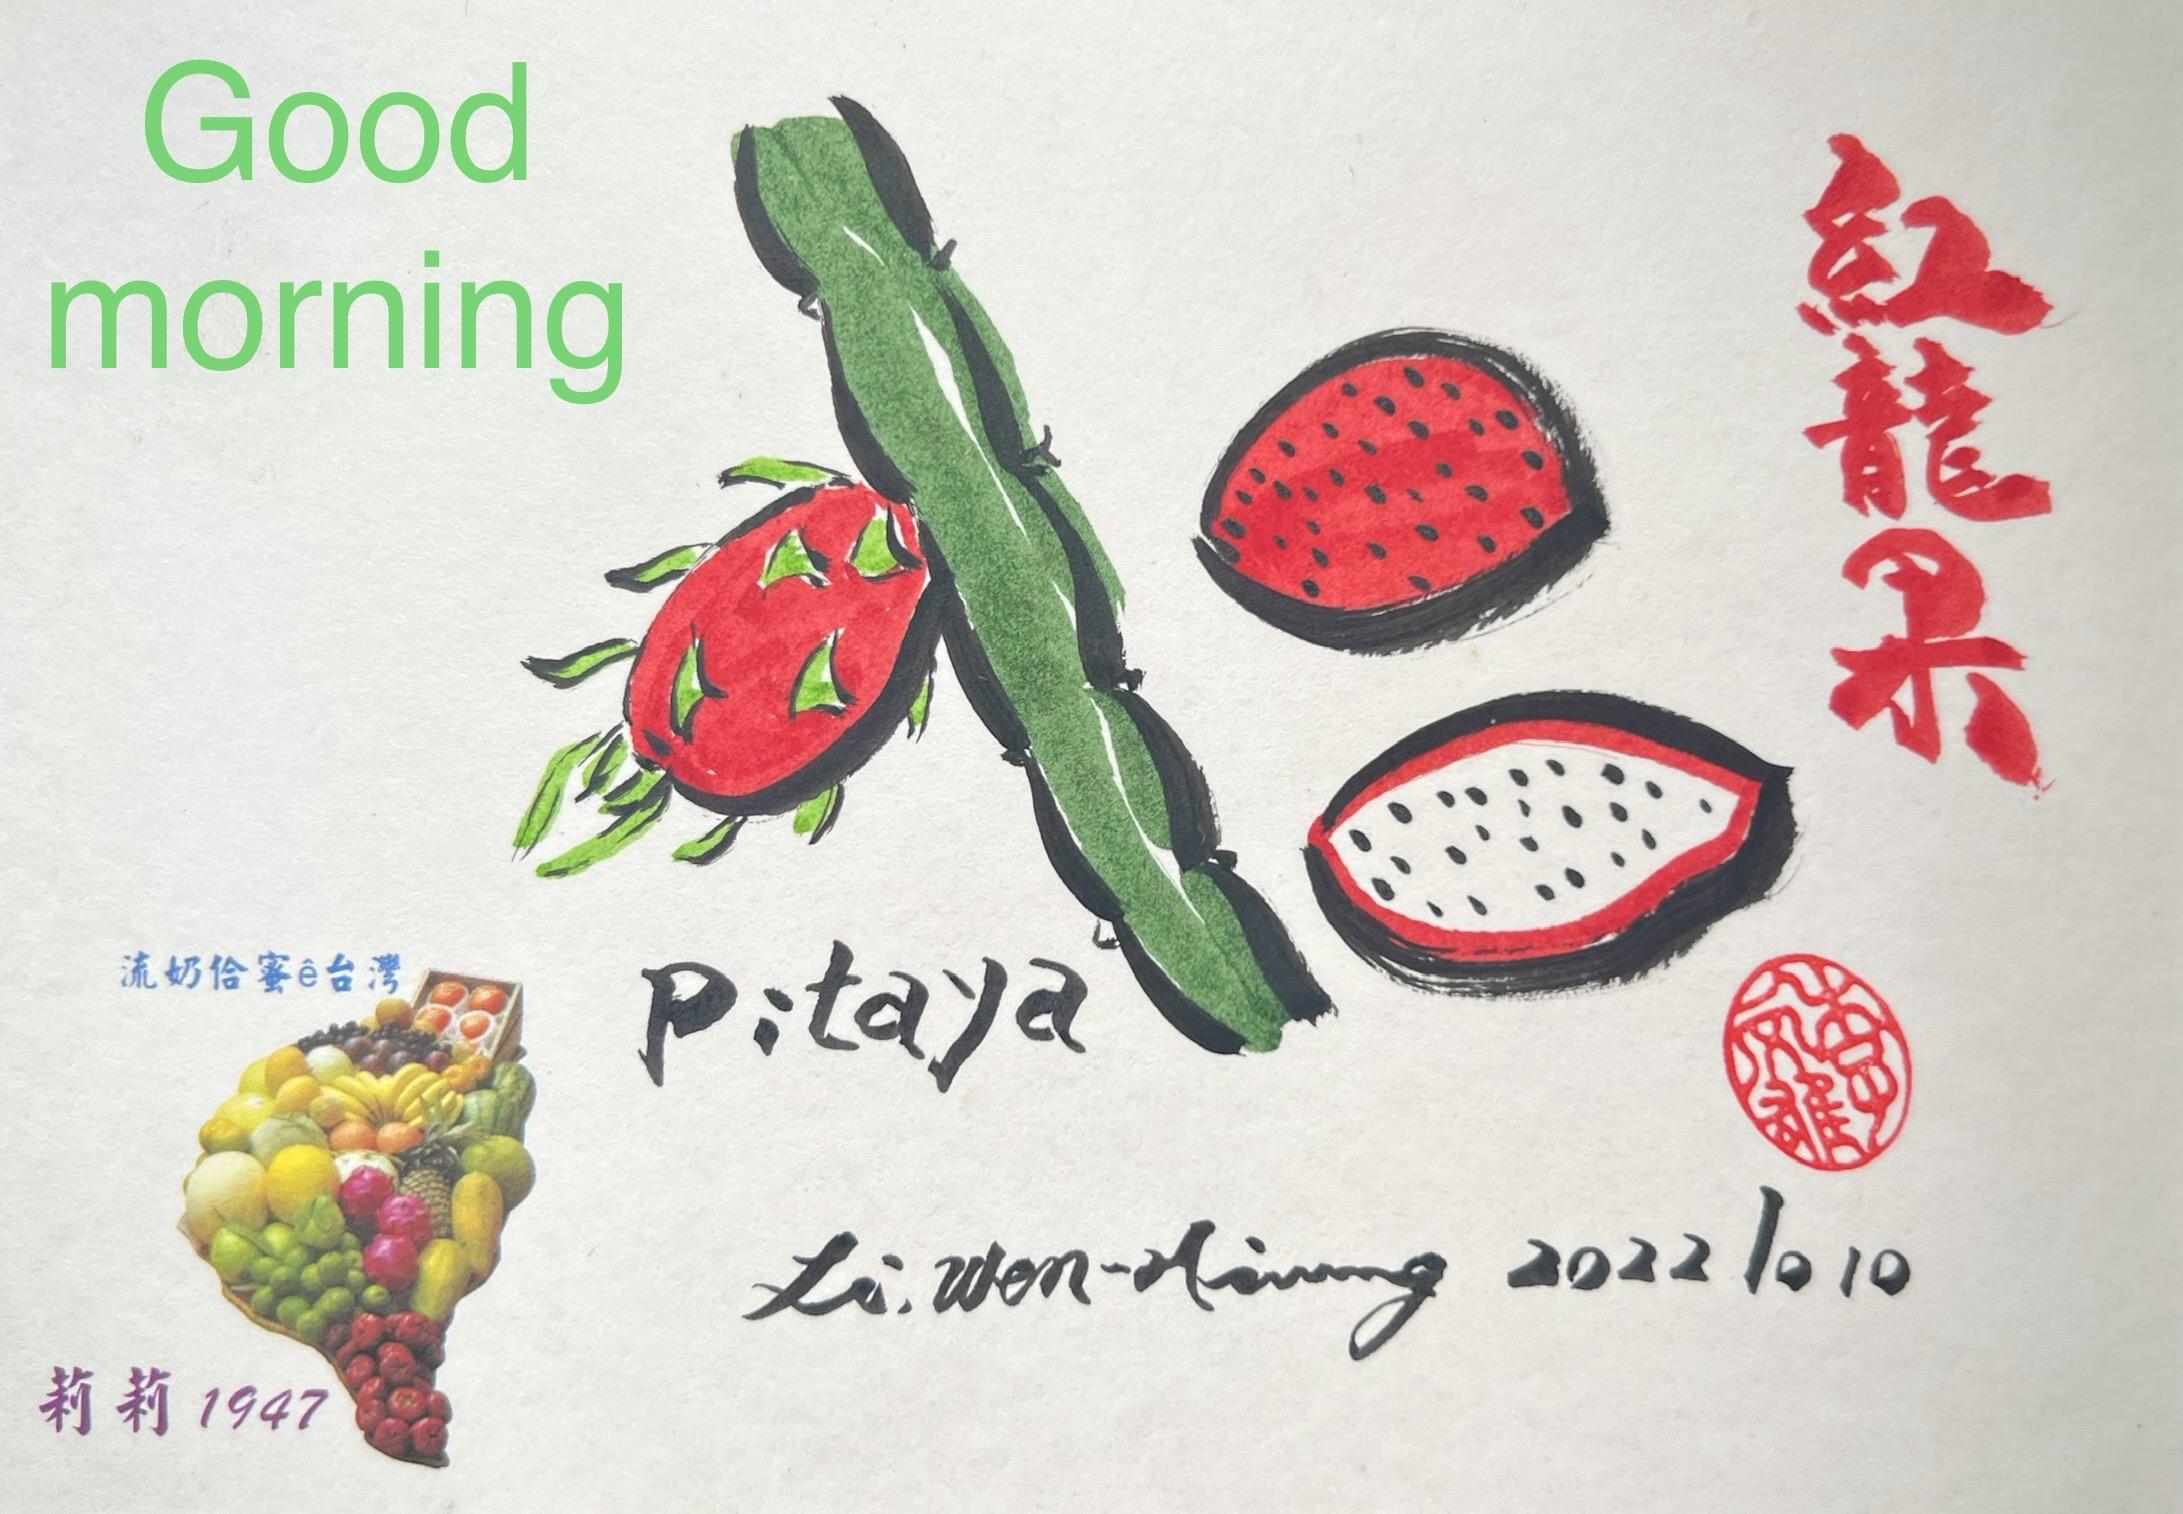 Good
morning
紅龍果
流奶佮蜜ê台灣
Pitaya
Li. Wen-Hsiung 2022/10 10
莉莉1947